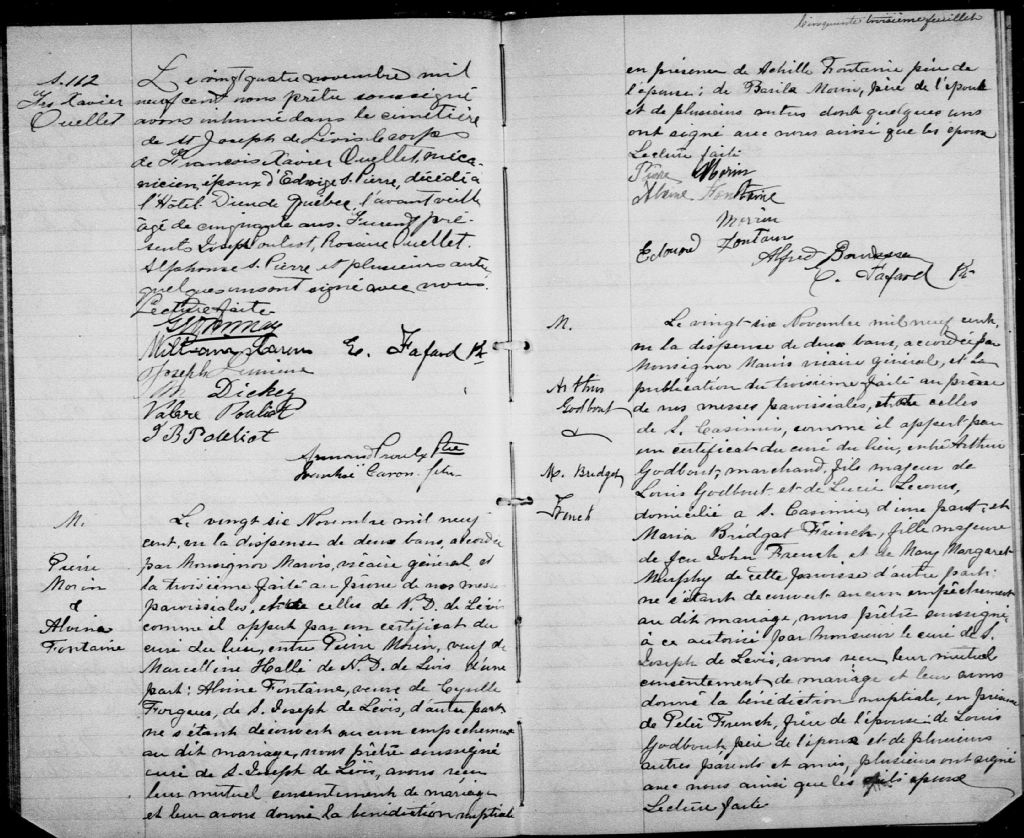 S. 112
Frs Xavier
Ouellet
Le vingt quatre novembre mil
neuf cent nous prêtre soussigné
avons inhumé dans le cimetière
de St Joseph de Lévis le corps
de François Xavier Ouellet, méca-
nicien, époux d'Edwige St. Pierre, décédé à
l'Hôtel Dieu de Québec, l'avant veille
âgé de cinquante ans. Furent pré-
sents Joseph Pouliot, Rosaire Ouellet.
Alphonse S. Pierre et plusieurs autres
quelques uns ont signé avec nous.
Lecture faite
William
E. Fafard Ptr
Joseph
Dickey
Valère Pouliot
J B Pouliot
Armand Proulx Ptre
Caron. ptre
M.
Pierre
Morin
&
Alvina
Fontaine
Le vingt six Novembre mil neuf
cent, vu la dispense de deux bans, accordée
par Monsignor Marois, vicaire général et
la troisième faite au prône de nos messes
paroissiales, et de celles de N. D. de Lévis
comme il appert par un certificat du
curé du lieu, entre Pierre Morin, veuf de
Marcelline Hallé de N. D. de Lévis d'une
part: Alvine Fontaine, veuve de Cyrille
Forgues, de S. Joseph de Lévis, d'autre part
ne s'étant découvert aucun empêchement
au dit mariage, nous prêtre soussigné
curé de S. Joseph de Lévis, avons reçu
leur mutuel consentement de mariage
et leur avons donné la bénédiction nuptiale
Cinquante troisième feuillet
en présence de Achille Fontaine père de
l'épouse; de Basile Morin, père de l'époux
et de plusieurs autres dont quelques uns
ont signé avec nous ainsi que les époux
Lecture faite
Pierre Morin
Alvine Fontaine
Morin
Edouard Fontaine
Alfred
E. Fafard Ptr
M.
Arthur
Godbout
&
M. Bridget
French
Le vingt-six Novembre mil neuf cent,
vu la dispense de deux bans, accordée par
Monsignor Marois vicaire général, et la
publication du troisième faite au prône
de nos messes paroissiales, et de celles
de S. Casimir, comme il appert par
un certificat du curé du lieu, entre Arthur
Godbout, marchand, fils majeur de
Louis Godbout et de Lucie Lecours,
domicilié à S. Casimir, d'une part; et
Maria Bridget French, fille majeure
de feu John French et de Mary Margaret
Murphy de cette paroisse d'autre part:
ne s'étant découvert aucun empêchement
au dit mariage, nous prêtre soussigné
à ce autorisé par Monsieur le curé de S.
Joseph de Lévis, avons reçu leur mutuel
consentement de mariage et leur avons
donné la bénédiction nuptiale, en présence
de Peter French, frère de l'épouse: de Louis
Godbout, père de l'époux et de plusieurs
autres parents et amis, plusieurs ont signé
avec nous ainsi que les époux
Lecture faite